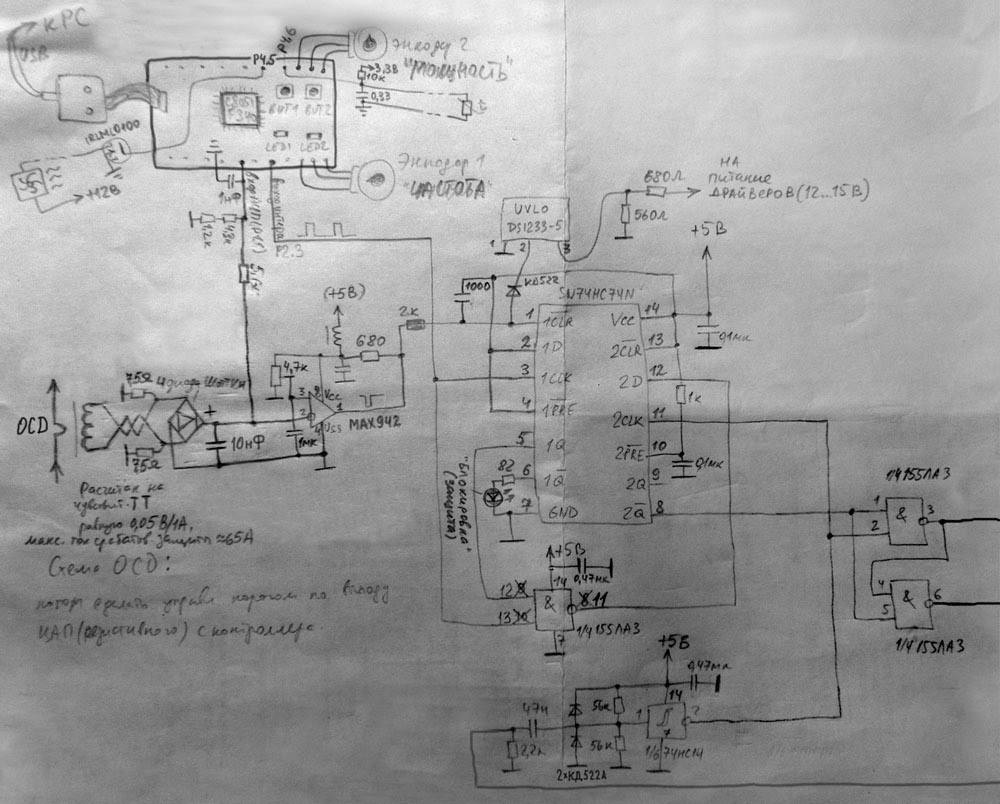 К PC
USB
P4.5
P4.6
Энкодер 2
"МОЩНОСТЬ"
3,3В
10к
0,33
t
C8051
F340
BUT1
BUT2
LED1
LED2
IRLML0100
+12В
1нФ
Энкодер 1
"ЧАСТОТА"
1.2к
43к
P2.3
5,1к
UVLO
DS1233-5
1
2
3
680Л
560Л
НА
питание
ДРАЙВЕРОВ (12...15В)
+5В
КД522
1000
SN74HC74N
0,1мк
1 1CLR
2 1D
3 1CLK
4 1PRE
5 1Q
6 1Q
7 GND
Vcc 14
2CLR 13
2D 12
2CLK 11
2PRE 10
2Q 9
2Q 8
1к
0,1мк
(+5В)
2к
680
4,7к
3
2
8
Vcc
1
4
Vss
MAX942
1мк
OCD
75Ω
4 диода Шоттки
+
10нФ
75Ω
Расчитан на
чувствит. ТТ
равную 0,05В/1А,
макс. ток сработов защиты ≈65А
Схема OCD:
ЦАП (резистивного) с контроллера
"БЛОКИРОВКА"
(защита)
82
+5В
0,47мк
14
12
13
&
11
7
1/4 155ЛА3
1/4 155ЛА3
1
2
&
3
4
5
&
6
1/4 155ЛА3
+5В
0,47мк
14
47н
2,2к
56к
56к
1
2
7
1/6 74HC14
2хКД522А